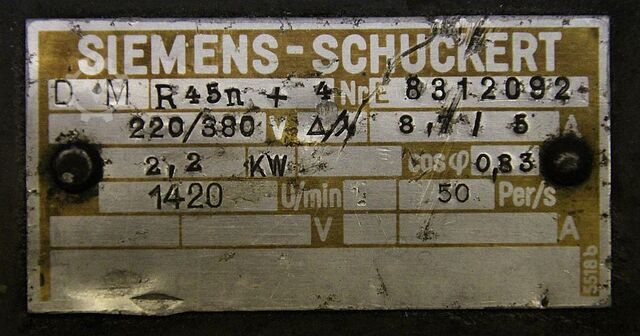 SIEMENS-SCHUCKERT
D M R45n + 4 Nr E 8312092
220/380 V Δ/⅄ 8,7/5 A
2,2 KW cosφ 0,83
1420 U/min 50 Per/s
V A
5518b